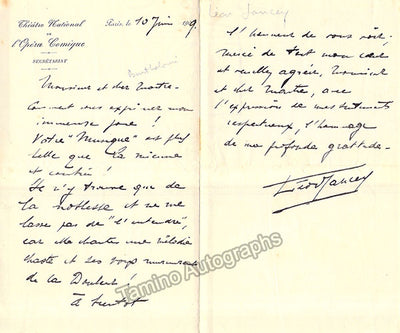 Théâtre National
de
l'Opéra Comique
SECRÉTARIAT
Paris, le 10 Juin 19 9.
Bartholoni
Monsieur et cher Maître
Comment vous exprimer mon
immense joie !
Votre "Musique" est plus
belle que la mienne
et combien !
Je n'y trouve que de
la noblesse et ne me
lasse pas de "l'entendre",
car elle chante une mélodie
chaste et les voix murmurantes
de la Douleur !
à bientôt
Leon Jancey
l'honneur de vous voir,
merci de tout mon cœur
et veuillez agréer, Monsieur
et cher Maître, avec
l'expression de mes sentiments
respectueux, l'hommage
de ma profonde gratitude.
Léon Jancey
Tamino Autographs